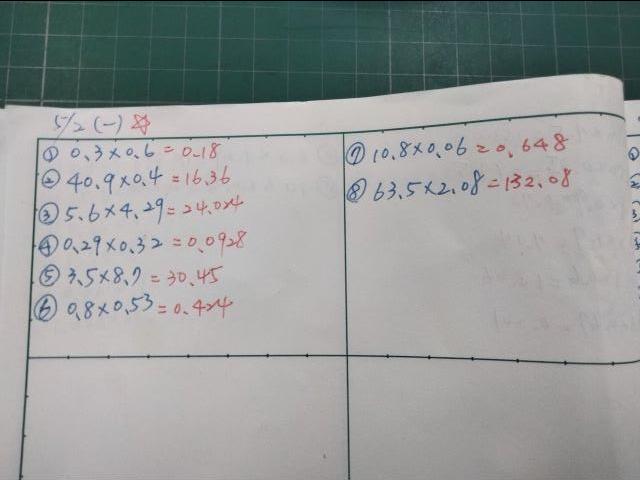 5/2 (一) ☆
① 0.3×0.6=0.18
② 40.9×0.4=16.36
③ 5.6×4.29=24.024
④ 0.29×0.32=0.0928
⑤ 3.5×8.7=30.45
⑥ 0.8×0.53=0.424
⑦ 10.8×0.06=0.648
⑧ 63.5×2.08=132.08